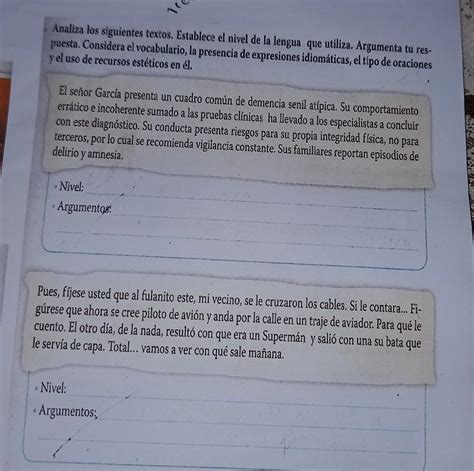 Analiza los siguientes textos. Establece el nivel de la lengua que utiliza. Argumenta tu res-
puesta. Considera el vocabulario, la presencia de expresiones idiomáticas, el tipo de oraciones
y el uso de recursos estéticos en él.
El señor García presenta un cuadro común de demencia senil atípica. Su comportamiento
errático e incoherente sumado a las pruebas clínicas ha llevado a los especialistas a concluir
con este diagnóstico. Su conducta presenta riesgos para su propia integridad física, no para
terceros, por lo cual se recomienda vigilancia constante. Sus familiares reportan episodios de
delirio y amnesia.
Nivel:
Argumentos:
Pues, fíjese usted que al fulanito este, mi vecino, se le cruzaron los cables. Si le contara... Fi-
gúrese que ahora se cree piloto de avión y anda por la calle en un traje de aviador. Para qué le
cuento. El otro día, de la nada, resultó con que era un Supermán y salió con una su bata que
le servía de capa. Total... vamos a ver con qué sale mañana.
Nivel:
Argumentos: